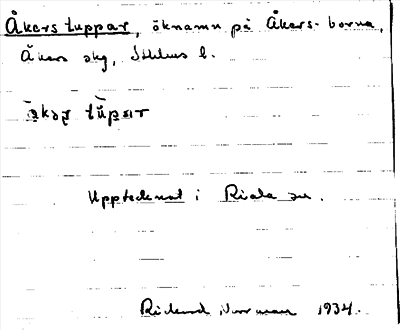 Åkers tuppar, öknamn på Åkers-borna,
Åkers skg, Sthlms l.
Upptecknat i Riala sn.
Rickard Norrman 1934.